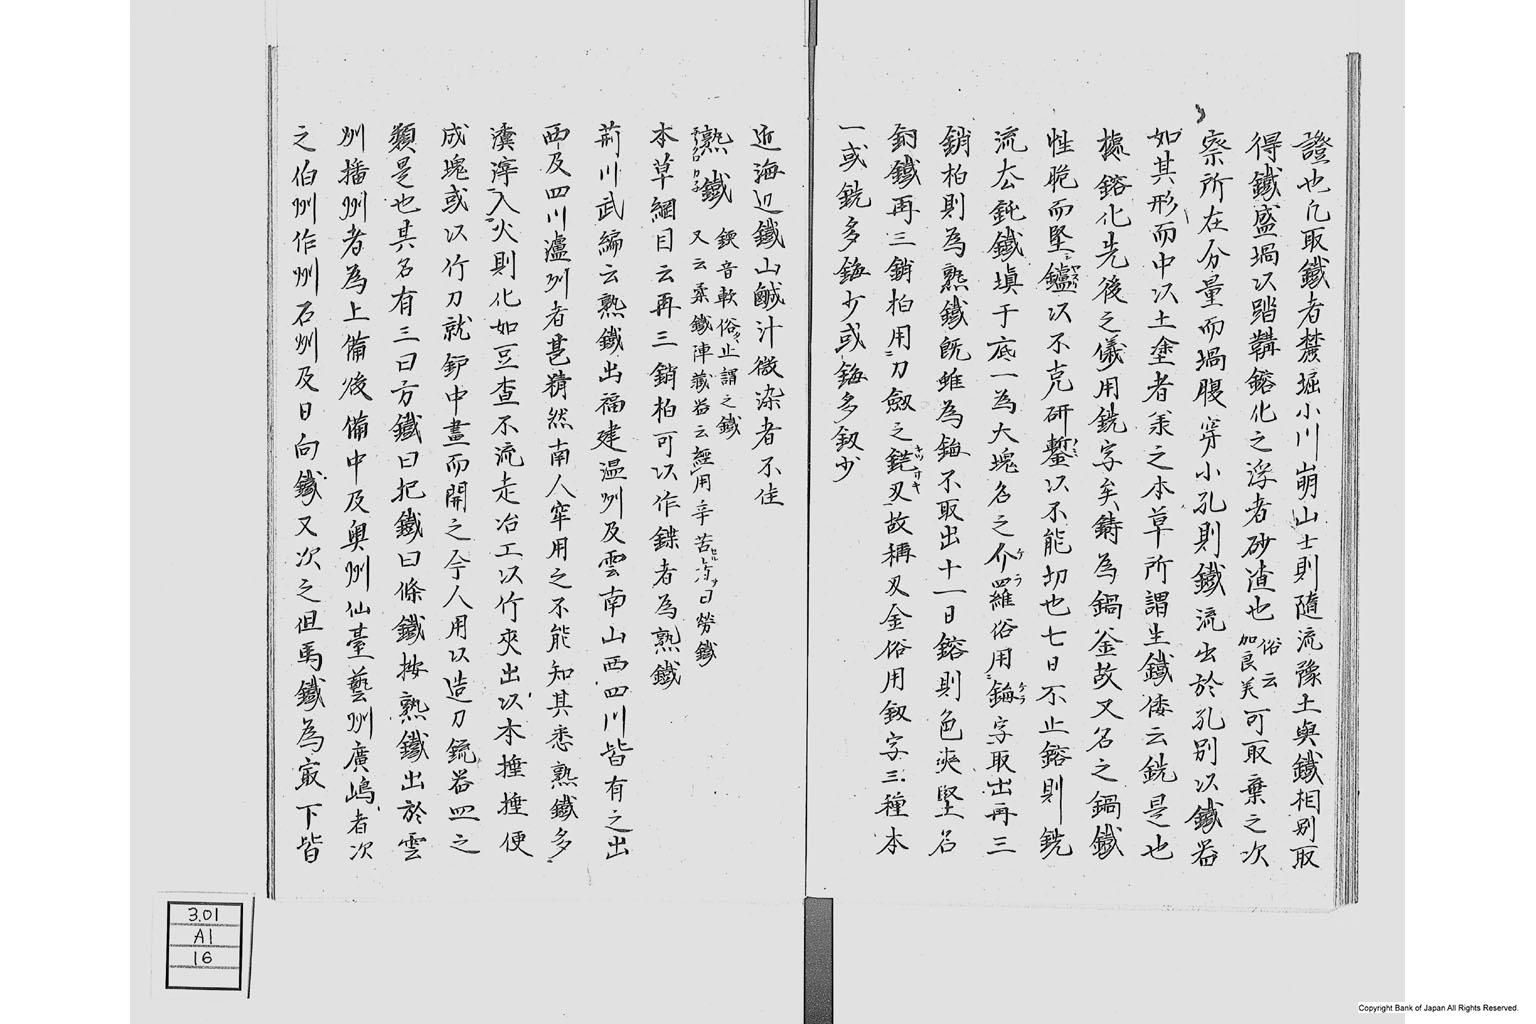 證也凡取鐵者麓堀小川崩山士則隨流豫土與鐵相別取
得鐵盛堝以踏鞴鎔化之浮者砂渣也俗云加良美可取棄之次
察所在分量而堝腹穿小孔則鐵流出於孔別以鐵器
如其形而中以土塗者汞之本草所謂生鐵倭云銑是也
據鎔化先後之儀用銑字矣鋳為鍋釜故又名之鍋鐵
性脆而堅鑪以不克研鏨以不能切也七日不止鎔則銑
流厺鈍鐵塡于底一為大塊名之介羅ケラ俗用鉧ケラ字取出再三
銷柏則為熟鐵既雖為鉧不取出十一日鎔則色爽堅名
鐵再三銷柏用刀劔之刃故稱刃金俗用釼字三種本
一或銑多鉧少或鉧多釼少
近海辺鐵山鹹汁微染者不佳
熟鐵 鍥音軟俗止謂之鐵
又云柔鐵陣藏器云經用辛苦者曰勞鐵
本草綱目云再三銷柏可以作鍱者為熟鐵
荊川武編云熟鐵出福建温州及雲南山西四川皆有之出
西及四川瀘州者甚精然南人罕用之不能知其悉熟鐵多
瀆滓入火則化如豆查不流走冶工以竹夾出以木捶捶便
成塊或以竹刀就鈩中畫而開之今人用以造刀銃器皿之
類是也其名有三曰方鐵曰把鐵曰條鐵按熟鐵出於雲
州播州者為上備後備中及奥州仙臺藝州廣嶋者次
之伯州作州石州及日向鐵又次之但馬鐵為㝡下皆
3.01
A1
16
Copyright Bank of Japan All Rights Reserved.